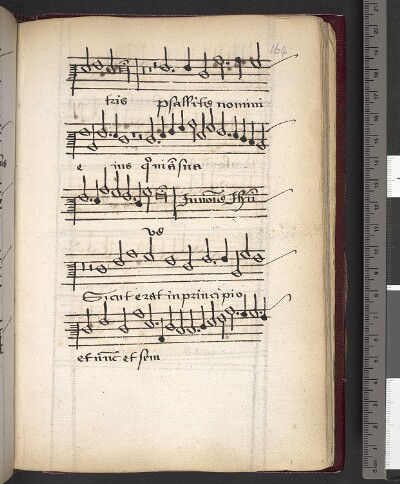 164
tris psallite nomini
e ius qm̄ sua
ve
Sicut erat in principio
et nūc et sem